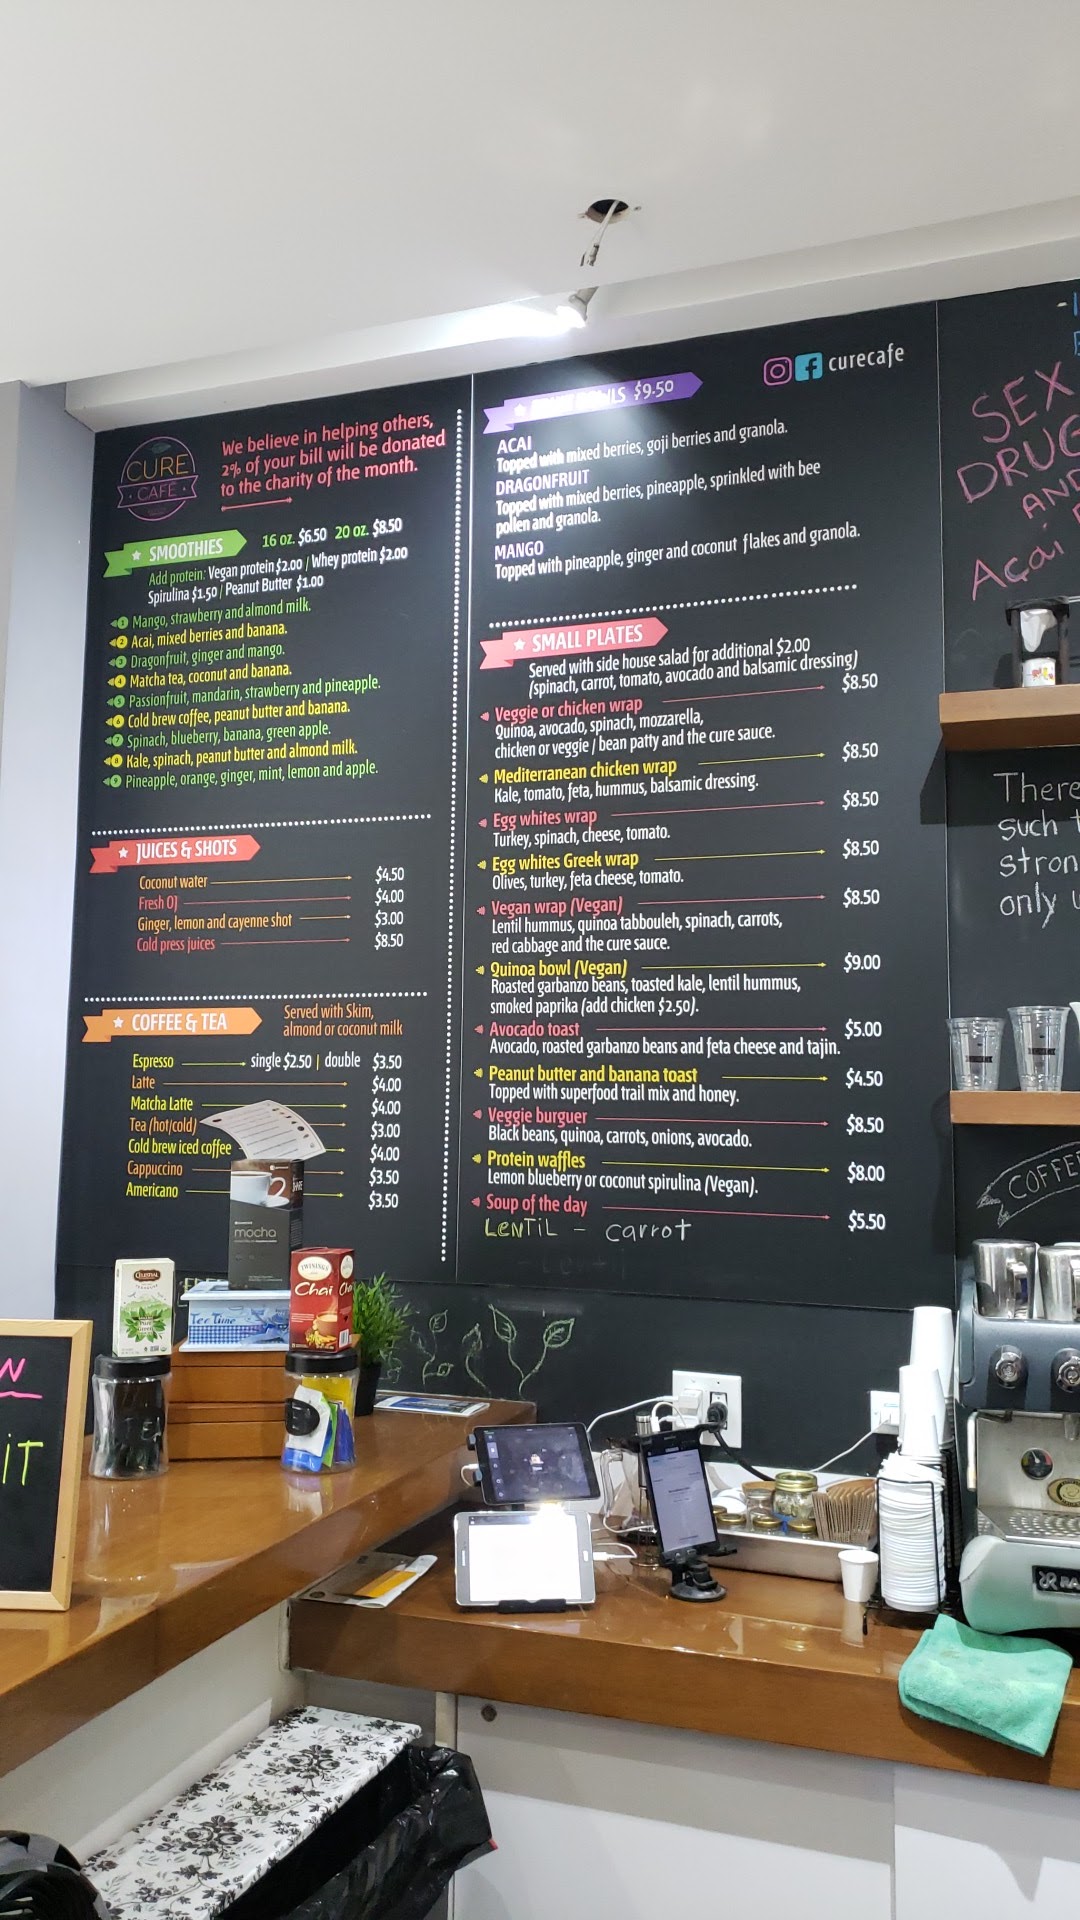 CURE
CAFÉ
We believe in helping others,
2% of your bill will be donated
to the charity of the month.
SMOOTHIES 16 oz. $6.50 20 oz. $8.50
Add protein: Vegan protein $2.00 / Whey protein $2.00
Spirulina $1.50 / Peanut Butter $1.00
1 Mango, strawberry and almond milk.
2 Acai, mixed berries and banana.
3 Dragonfruit, ginger and mango.
4 Matcha tea, coconut and banana.
5 Passionfruit, mandarin, strawberry and pineapple.
6 Cold brew coffee, peanut butter and banana.
7 Spinach, blueberry, banana, green apple.
8 Kale, spinach, peanut butter and almond milk.
9 Pineapple, orange, ginger, mint, lemon and apple.
JUICES & SHOTS
Coconut water $4.50
Fresh OJ $4.00
Ginger, lemon and cayenne shot $3.00
Cold press juices $8.50
COFFEE & TEA
Served with Skim,
almond or coconut milk
Espresso single $2.50 | double $3.50
Latte $4.00
Matcha Latte $4.00
Tea (hot/cold) $3.00
Cold brew iced coffee $4.00
Cappuccino $3.50
Americano $3.50
curecafe
BOWLS $9.50
ACAI
Topped with mixed berries, goji berries and granola.
DRAGONFRUIT
Topped with mixed berries, pineapple, sprinkled with bee
pollen and granola.
MANGO
Topped with pineapple, ginger and coconut flakes and granola.
SMALL PLATES
Served with side house salad for additional $2.00
(spinach, carrot, tomato, avocado and balsamic dressing)
Veggie or chicken wrap $8.50
Quinoa, avocado, spinach, mozzarella,
chicken or veggie / bean patty and the cure sauce.
Mediterranean chicken wrap $8.50
Kale, tomato, feta, hummus, balsamic dressing.
Egg whites wrap $8.50
Turkey, spinach, cheese, tomato.
Egg whites Greek wrap $8.50
Olives, turkey, feta cheese, tomato.
Vegan wrap (Vegan) $8.50
Lentil hummus, quinoa tabbouleh, spinach, carrots,
red cabbage and the cure sauce.
Quinoa bowl (Vegan) $9.00
Roasted garbanzo beans, toasted kale, lentil hummus,
smoked paprika (add chicken $2.50).
Avocado toast $5.00
Avocado, roasted garbanzo beans and feta cheese and tajin.
Peanut butter and banana toast $4.50
Topped with superfood trail mix and honey.
Veggie burguer $8.50
Black beans, quinoa, carrots, onions, avocado.
Protein waffles $8.00
Lemon blueberry or coconut spirulina (Vegan).
Soup of the day $5.50
LENTIL - carrot
SEX
DRUG
AND
Açai
There
such t
stron
only u
COFFEE
mocha
CELESTIAL
TWININGS
Chai
Tea Time
N
IT